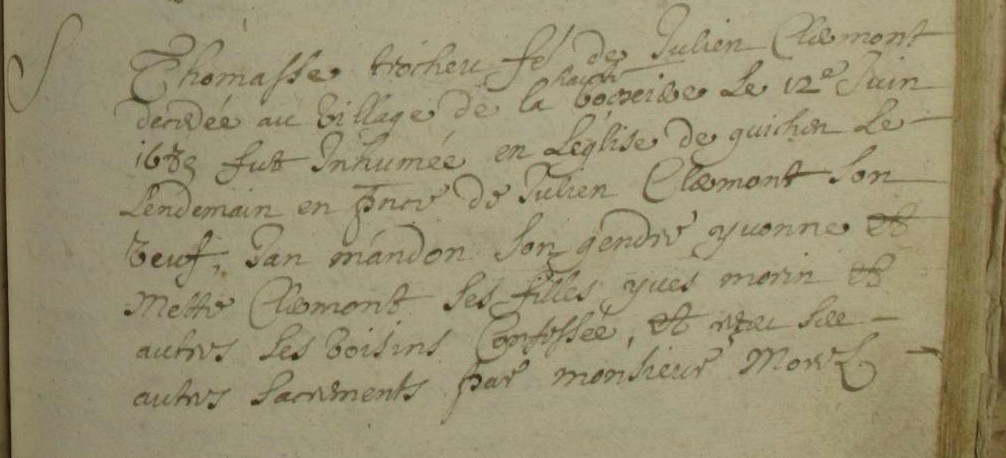 Thomasse trocheu fe de Julien Clemont
decedée au village de la haute boexiere Le 12e Juin
fut Inhumée en Leglise de guichen Le
Lendemain en pnce de Julien Clemont son
veuf, Jan mandon son gendre yvonne et
Clemont ses filles, yves morin et
autres ses voisins Confessée, et receu ses
autres sacrements par monsieur Morel